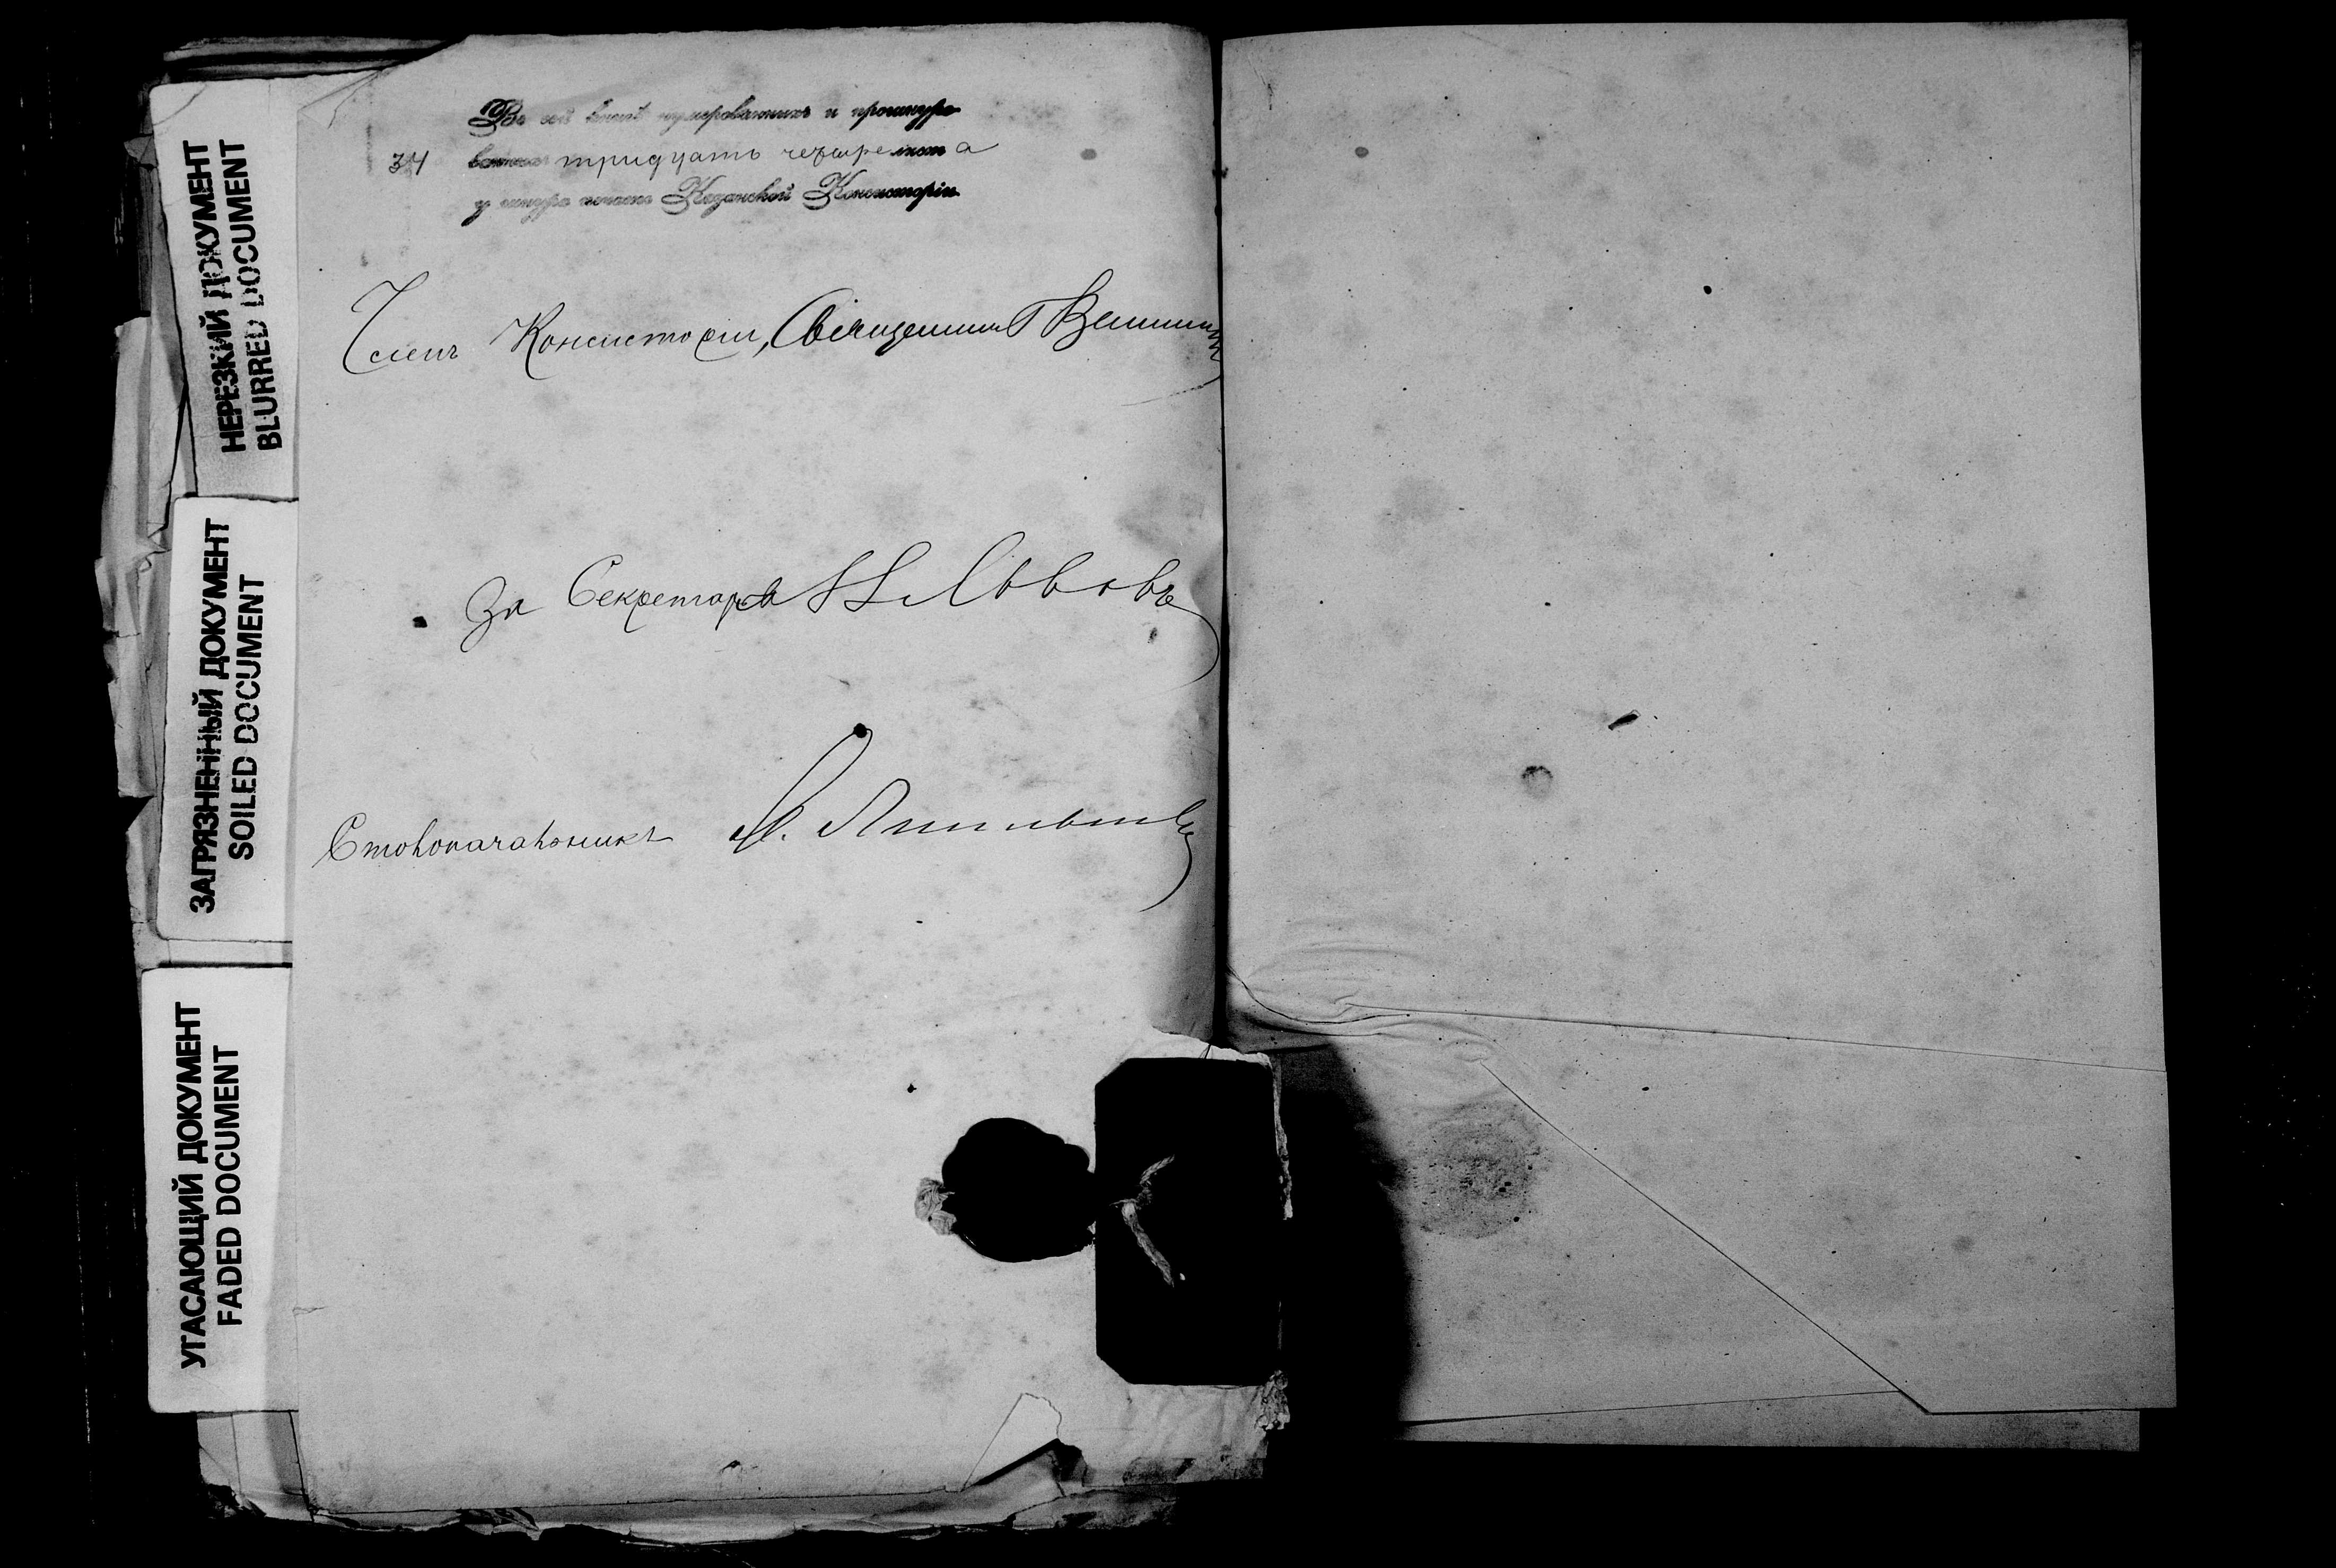 НЕРЕЗКИЙ ДОКУМЕНТ
BLURRED DOCUMENT
ЗАГРЯЗНЕННЫЙ ДОКУМЕНТ
SOILED DOCUMENT
УГАСАЮЩИЙ ДОКУМЕНТ
FADED DOCUMENT
Въ сей книгѣ нумерованныхъ и прошнуро
34 ванныхъ тридцать четыре листа
у шнура печать Казанской Консисторіи
Членъ Консисторіи, Священникъ
За Секретаря Н Львовъ
Столоначальникъ